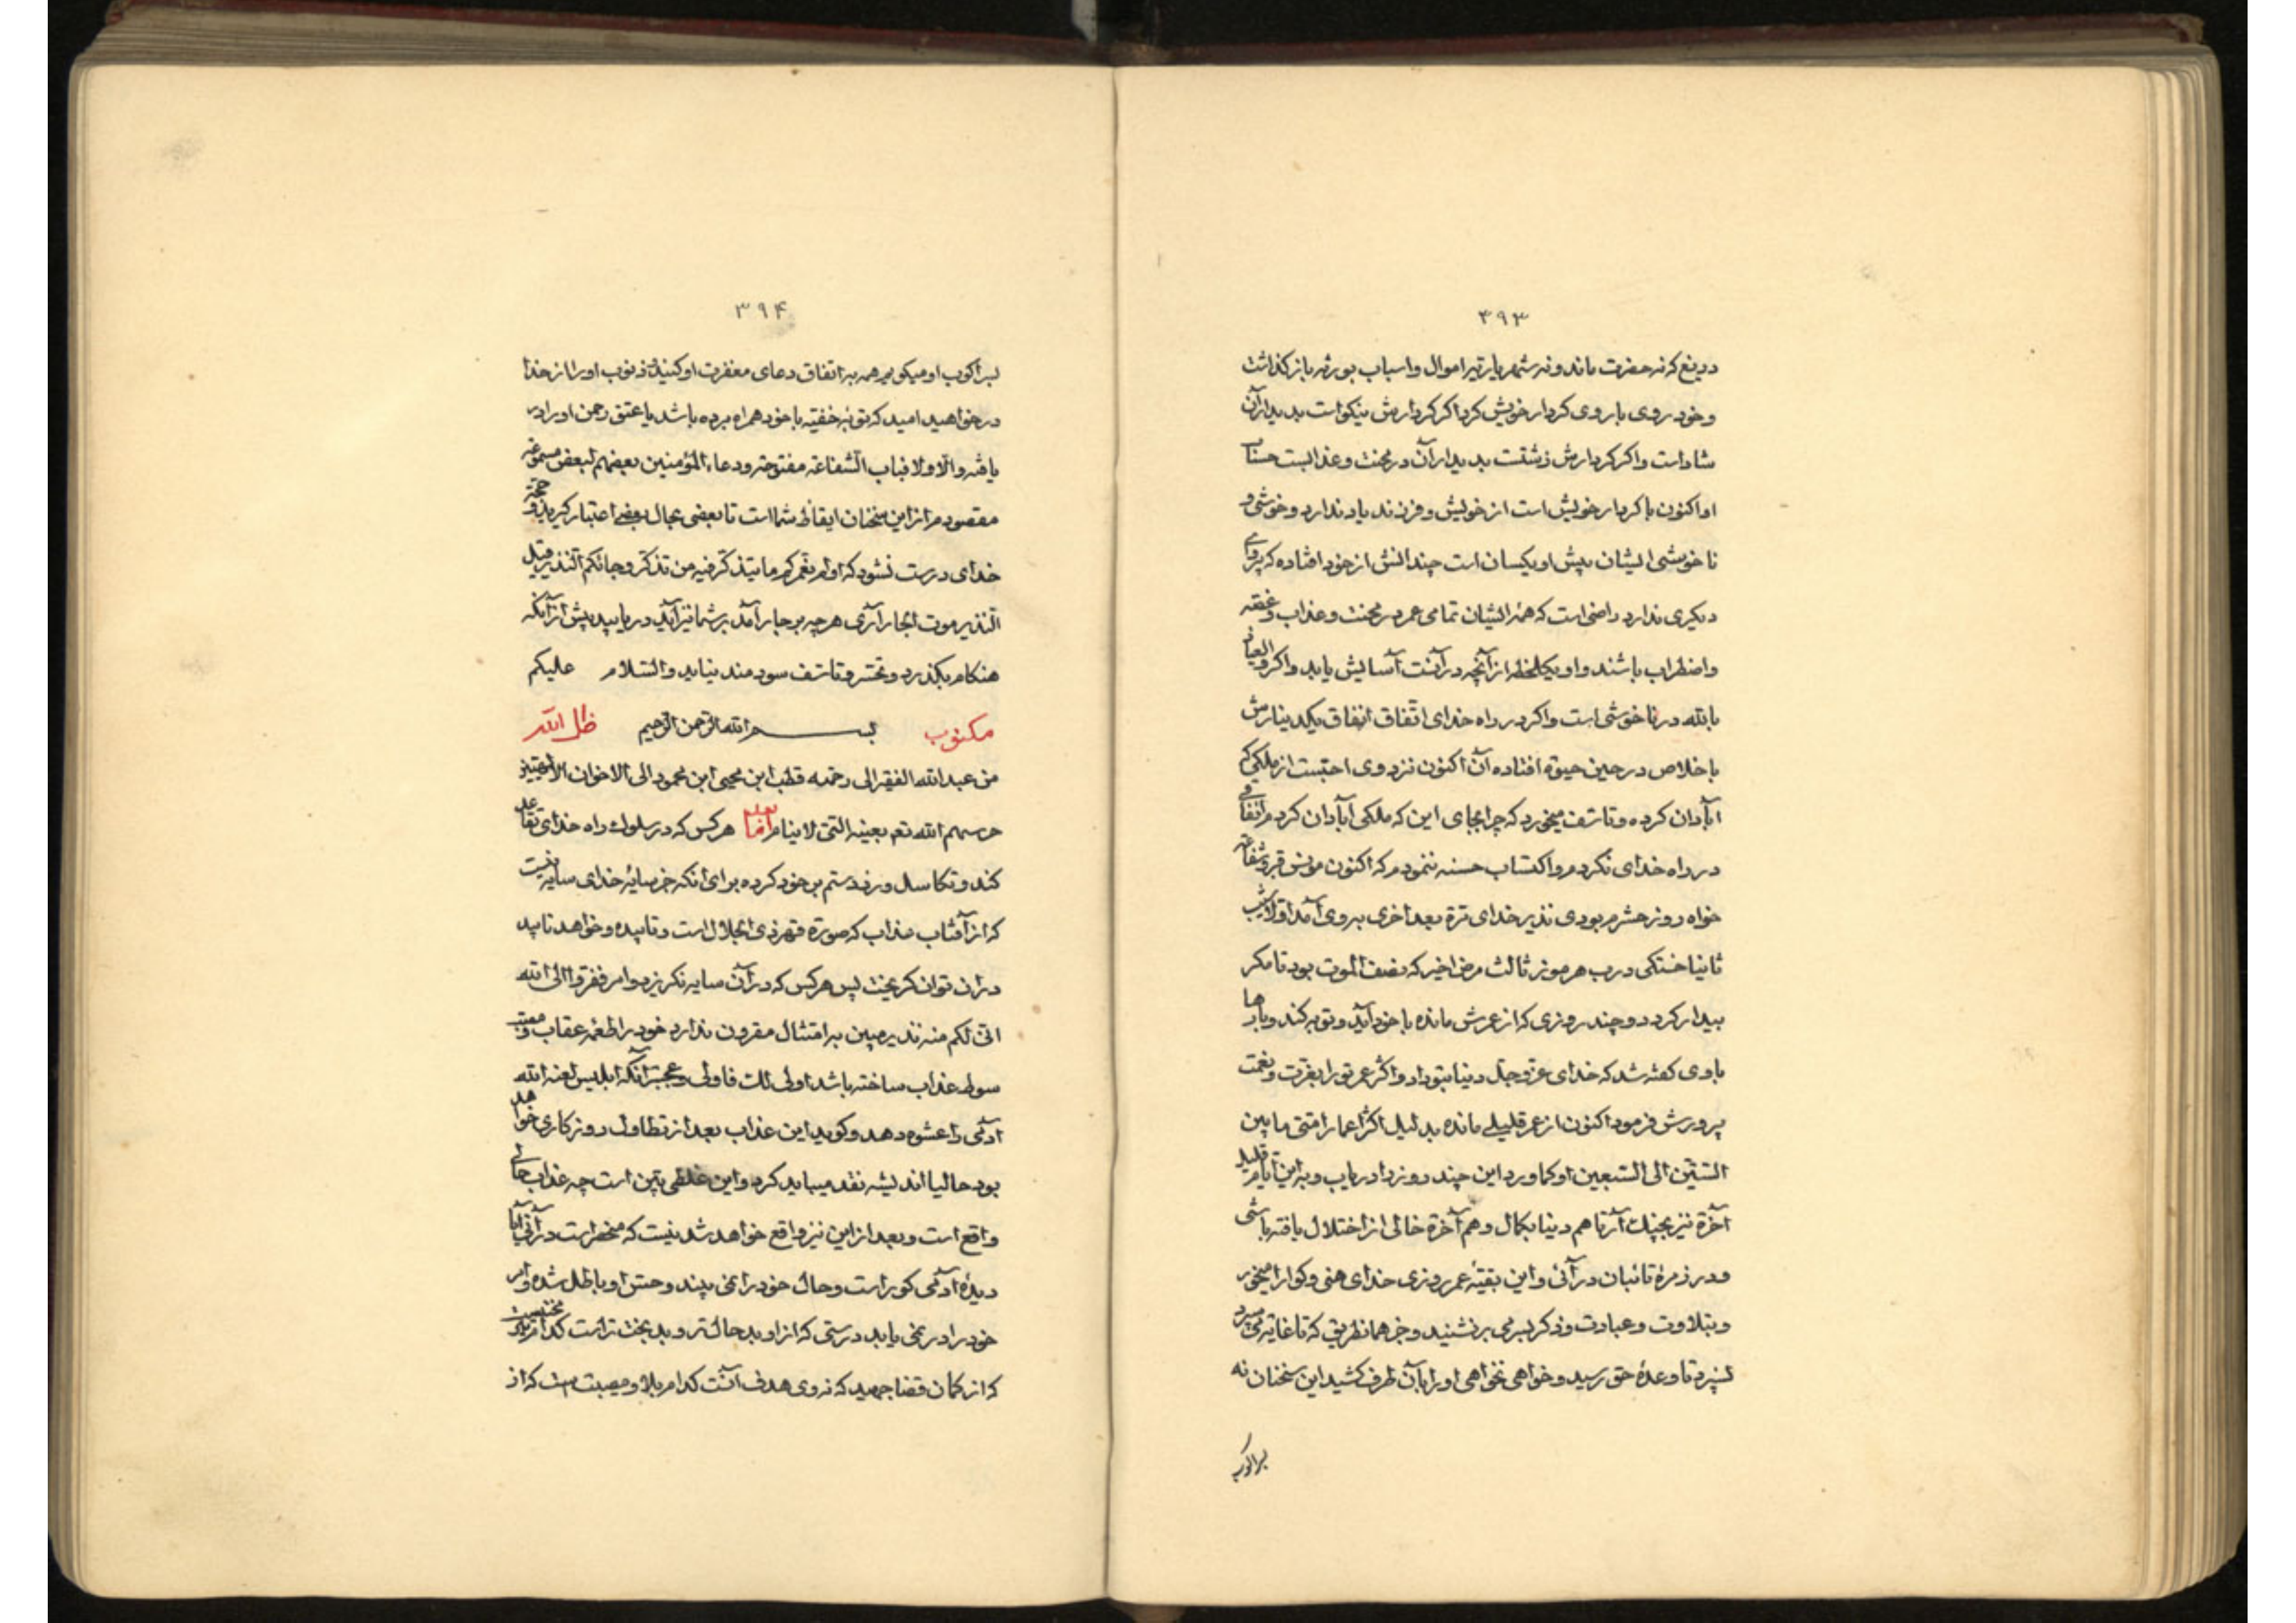 ۳۹۳
دریغ که نه حضرت ماند و نه شهریاریت اموال و اسباب بورثه بازگذاشت
و خود روی با روی کردار خویش کرد اگر کردارش نیکو است بدیدار آن
شاد است و اگر کردارش زشتست بدیدار آن در محنت و عذابست
او اکنون با کردار خویش است از خویش و فرزند یاد ندارد و خوشی و
ناخوشی ایشان پیش او یکسان است چندانش از خود افتاده که پروای
دیگری ندارد راضی است که همه ایشان تمامی عمر در محنت و عذاب و غصّه
و اضطراب باشند و او یکلحظه از آنچه در آنست آسایش یابد و اگر والعیاذ
بالله در ناخوشی است و اگر در راه خدای اتّفاق انفاق یکدینارش
باخلاص در حین حیوة افتاده آن اکنون نزد وی احبّست از ملکی که
آبادان کرده و تاسّف میخورد که چرا بجای این که ملکی آبادان کردم انفاقی
در راه خدای نکردم و اکتساب حسنه ننمودم که اکنون مونس قبر و شفاعت
خواه روز حشرم بودی نذیر خدای ترة بعد اخری بر وی آمد اوّلا شیب
ثانیا خستگی درب هرموز ثالث مرض اخیر که نصف الموت بود تا مگر
بیدار گردد و چند روزی که از عمرش مانده با خود آید و توبه کند و بارها
با وی گفته شد که خدای عزّ و جلّ دنیا بتو داد و اکثر عمر تو را بعزّت و نعمت
پرورش فرمود اکنون از عمر قلیلی مانده بدلیل اکثر اعمار امّتی ما بین
الستّین الی السّبعین او کما ورد این چند روز را دریاب و به این ایّام قلیل
آخرة نیز بچنگ آر تا هم دنیا بکمال و هم آخرة خالی از اختلال یافته باشی
و در زمره تائبان در آئی و این بقیّه عمر روزی خدای هنی و گوارا میخور
و بتلاوت و عبادت و ذکر بسر می بر نشنید و جز همان طریق که تا غایة می سپرد
نسپرد تا وعده حق رسید و خواهی نخواهی او را بآن طرف کشید این سخنان نه
براکوب
۳۹۴
براکوب او میگویم همه به اتفاق دعای مغفرت او کنید و ذنوب او را از خدا
درخواهید امید که توبه خفیّه با خود همراه برده باشد یا عتق رحمن او را در
یافته و الّا ولا فباب الشّفاعة مفتوحة و دعاء المؤمنین بعضهم لبعض مسموعة
مقصودم از این سخنان ایقاظ شما است تا بعضی بحال بعضی اعتبار گیرید و حجّة
خدای درست نشود که اولم نعمّرکم ما یتذکّر فیه من تذکّر و جائکم النّذیر قیل
النّذیر موت الجار آری هر چه بر جار آمد بر شما نیز آید دریابید پیش از آنکه
هنگام بگذرد و تحسّر و تاسّف سودمند نیاید والسّلام علیکم
مکتوب بسم الله الرّحمن الرّحیم ظلّ الله
من عبد الله الفقیر الی رحمته قطب ابن محیی ابن محمود الی الاخوان
حرسهم الله تعم بعینه الّتی لا ینام امّا بعد هر کس که در سلوک راه خدای تقاعد
کند و تکاسل ورزد ستم بر خود کرده برای آنکه جز سایه خدای سایه نیست
که از آفتاب عذاب که صورة قهر ذی الجلال است و تابیده و خواهد تابید
در آن توان گریخت پس هر کس که در آن سایه نگریزد و امر ففرّوا الی الله
انّی لکم منه نذیر مبین به امتثال مقرون ندارد خود را طعمه عقاب و
سوط عذاب ساخته باشد اولی لک فاولی و عجبتر آنکه ابلیس لعنه الله
آدمی را عشوه دهد و گوید این عذاب بعد از تطاول روزگاری خواهد
بود حالیا اندیشه نقد میباید کرد و این غلطی بیّن است چه عذاب حالی
واقع است و بعد از این نیز واقع خواهد شد نیست که منحصر است در آتی امّا
دیده آدمی کور است و حال خود را نمی بیند و حسّ او باطل شده و امر
خود را در نمی یابد درستی که از او بدحال تر و بدبخت تر است کدام تیر
که از کمان قضا جهید که نه وی هدف آنست کدام بلا و مصیبت است که از